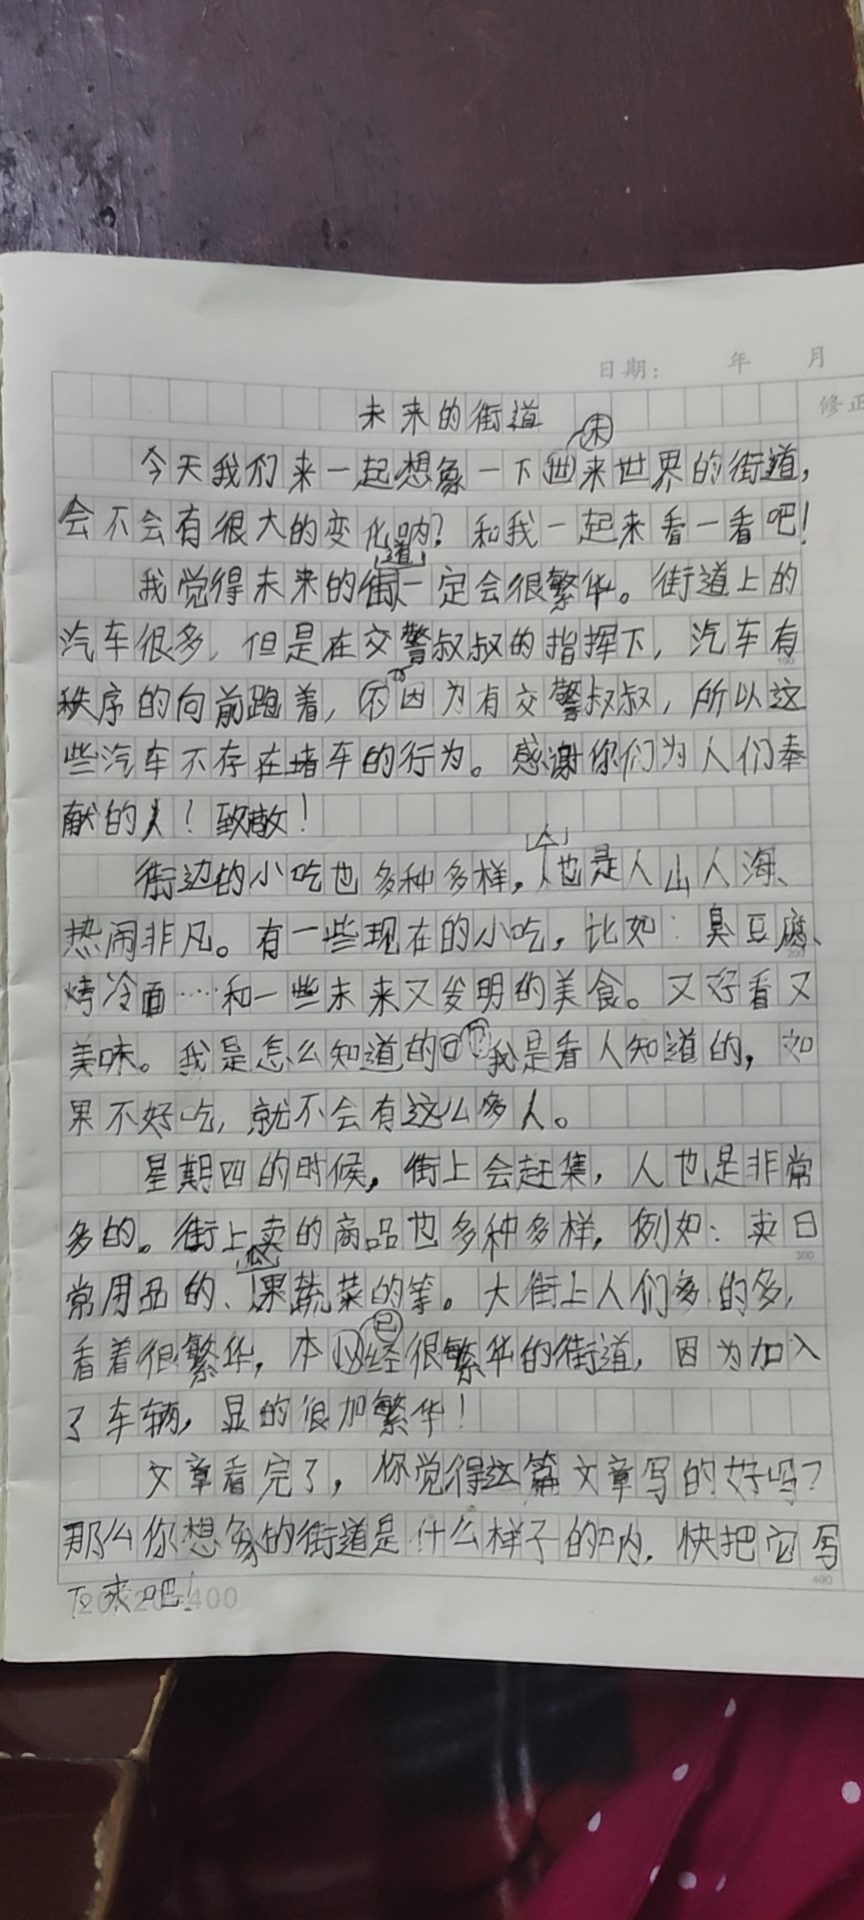 日期： 年 月
修正
未来的街道
今天我们来一起想象一下未来世界的街道，
会不会有很大的变化呐？和我一起来看一看吧！
我觉得未来的街道一定会很繁华。街道上的
汽车很多，但是在交警叔叔的指挥下，汽车有
秩序的向前跑着，因为有交警叔叔，所以这
些汽车不存在堵车的行为。感谢你们为人们奉
献的人！致敬！
街边的小吃也多种多样，人也是人山人海、
热闹非凡。有一些现在的小吃，比如：臭豆腐、
烤冷面……和一些未来又发明的美食。又好看又
美味。我是怎么知道的？我是看人知道的，如
果不好吃，就不会有这么多人。
星期四的时候，街上会赶集，人也是非常
多的。街上卖的商品也多种多样，例如：卖日
常用品的、瓜果蔬菜的等。大街上人们多的多，
看着很繁华，本已经很繁华的街道，因为加入
了车辆，显的很加繁华！
文章看完了，你觉得这篇文章写的好吗？
那么你想象的街道是什么样子的呐，快把它写
下来吧！
100
200
300
400
20×20=400